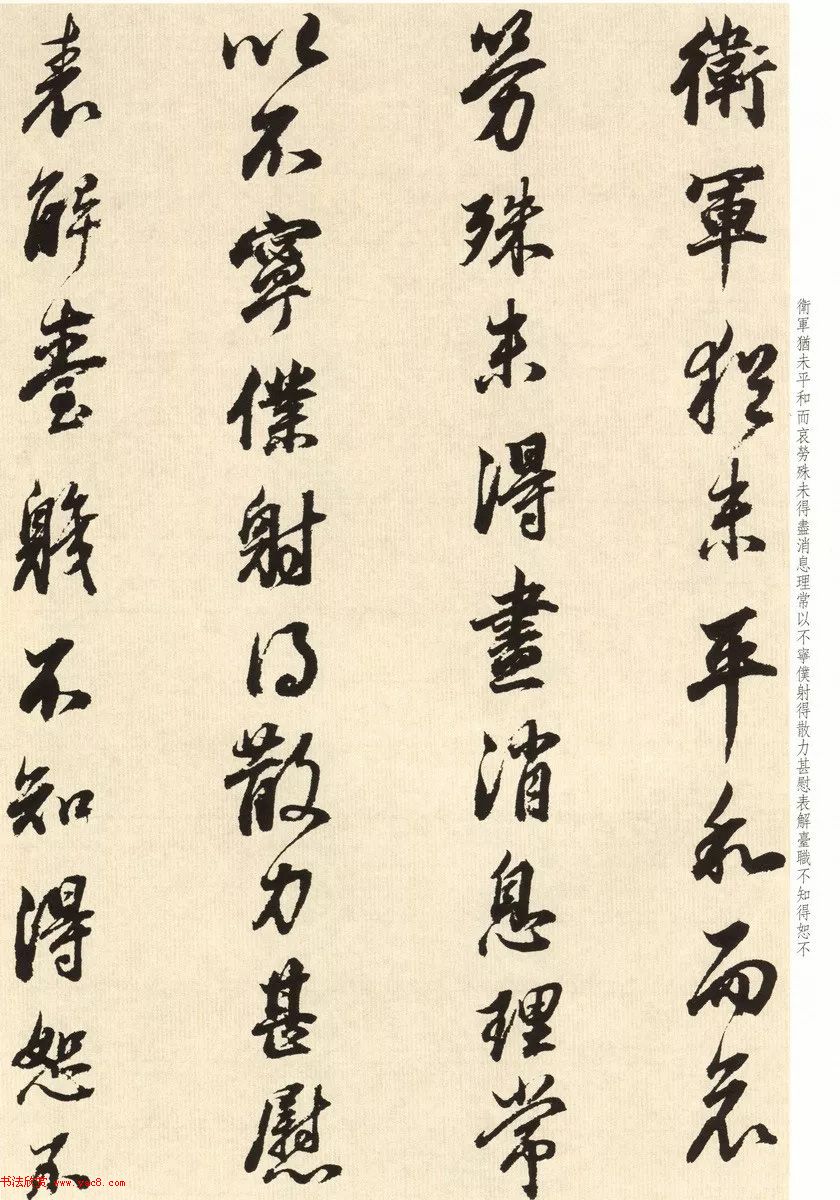 衛軍猶未平和而哀
勞殊未得盡消息理常
以不寧僕射得散力甚慰
表解臺職不知得恕不
衛軍猶未平和而哀勞殊未得盡消息理常以不寧僕射得散力甚慰表解臺職不知得恕不
书法欣赏 www.yac8.com